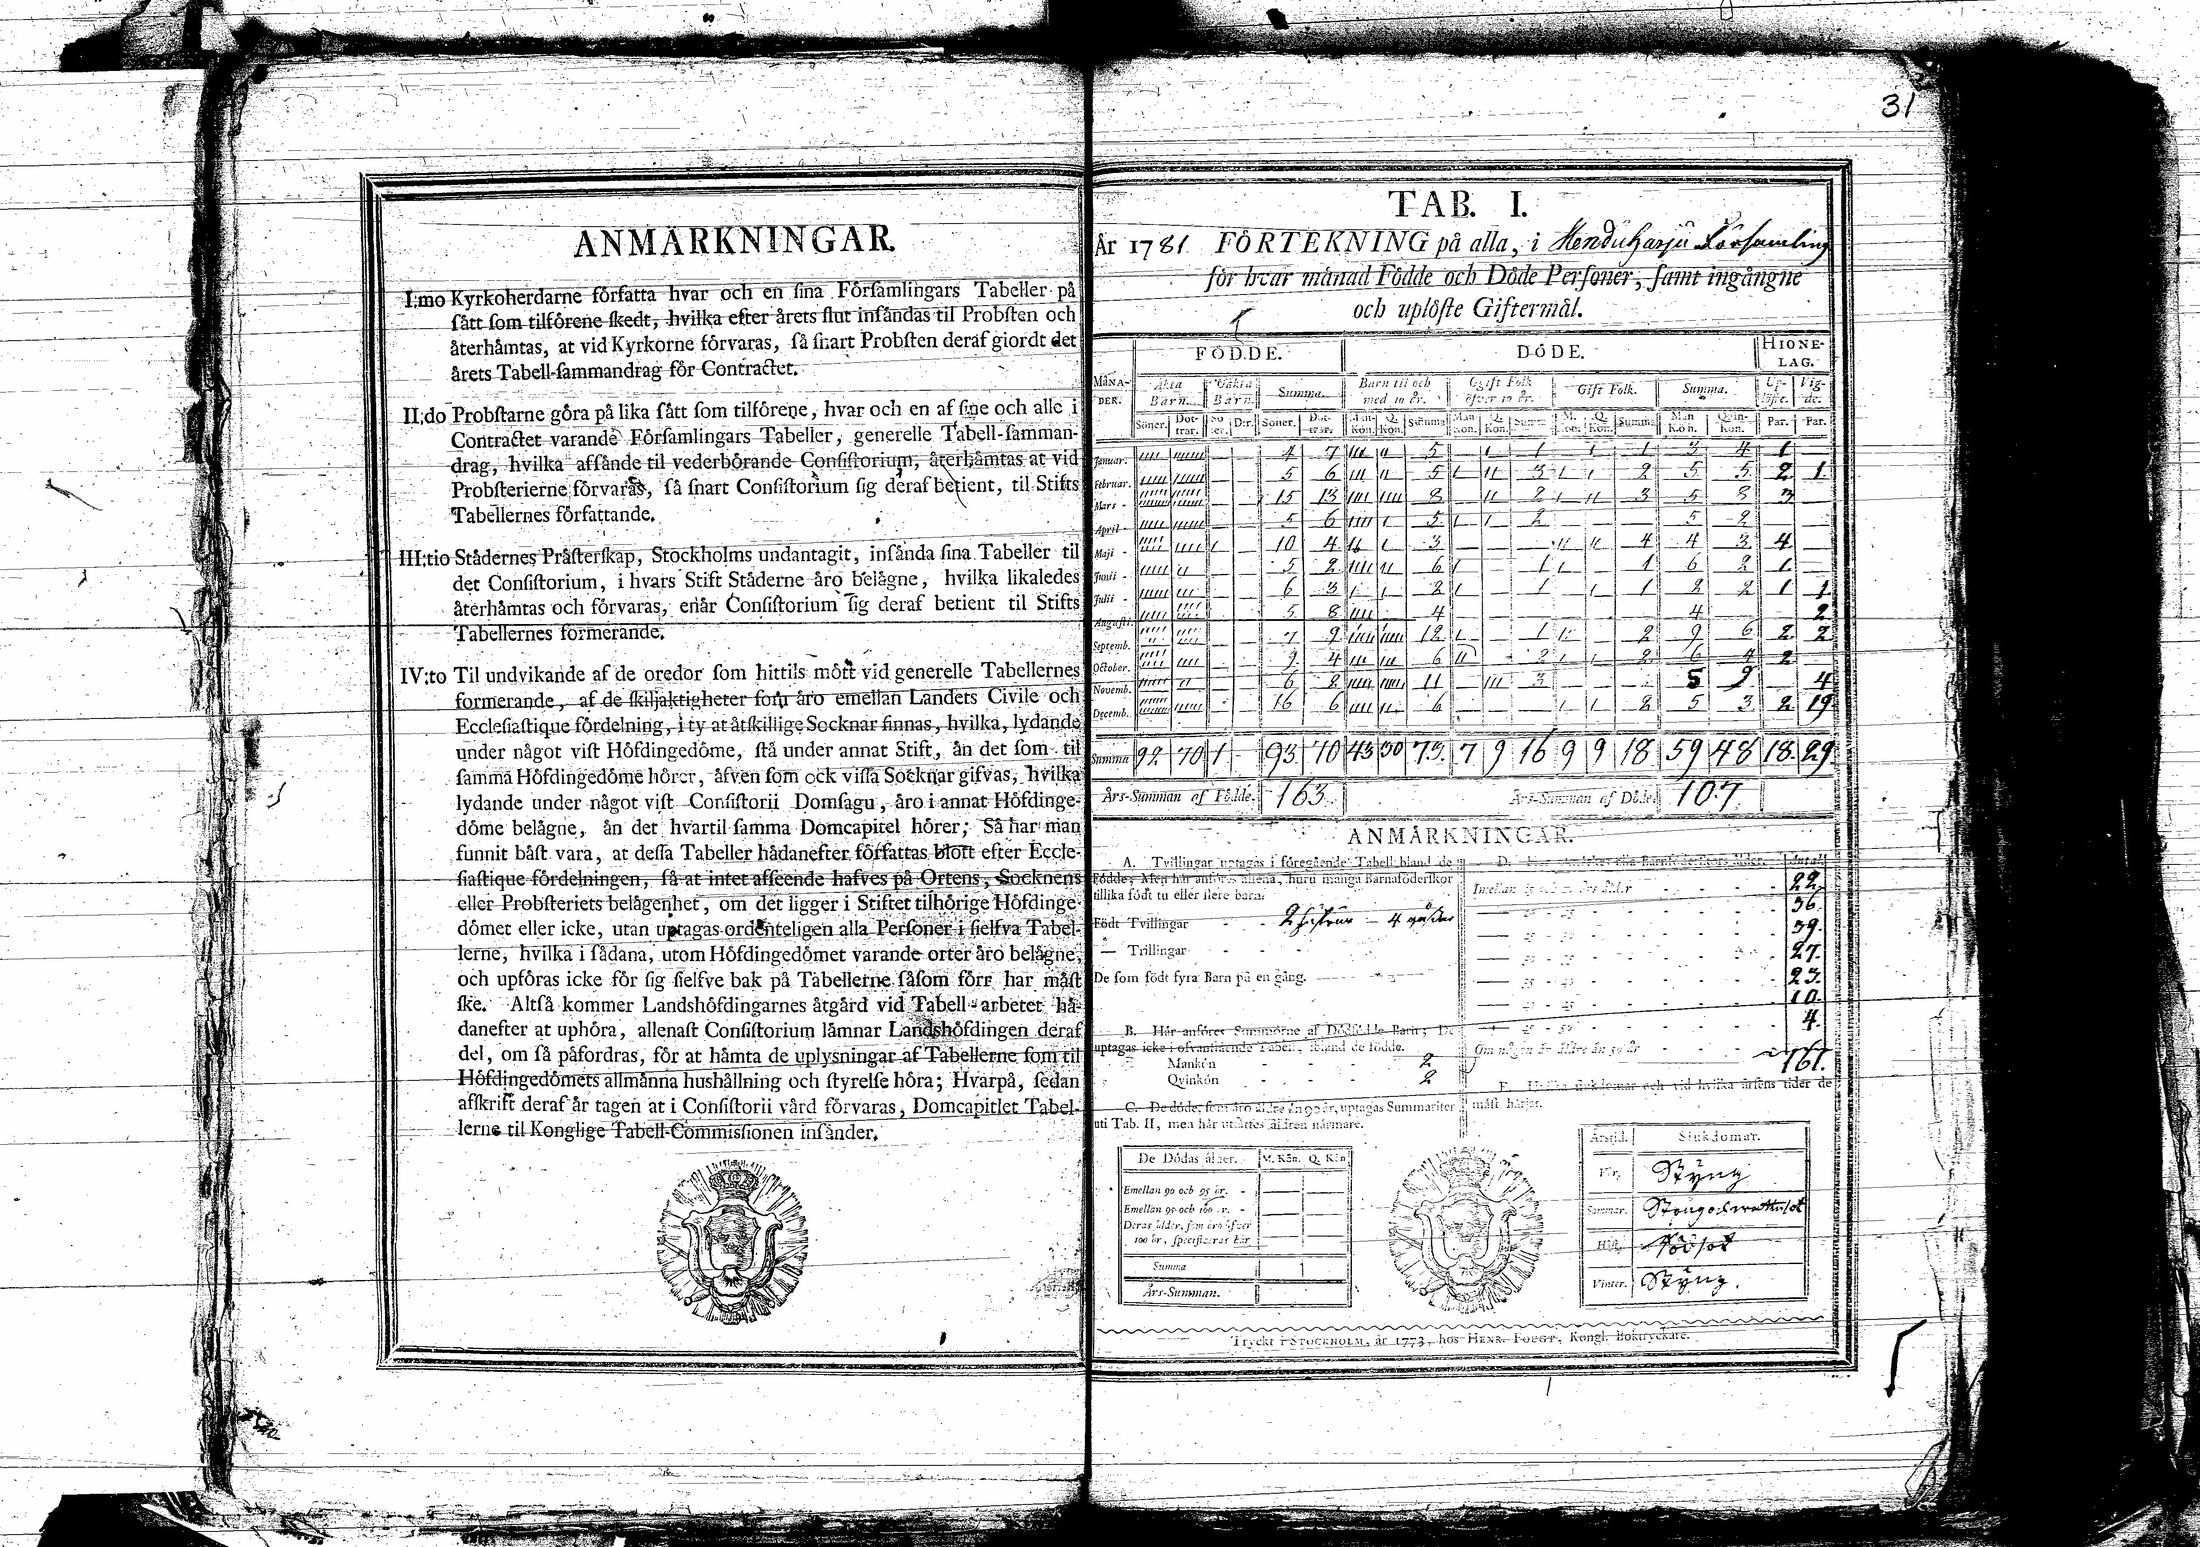 31
ANMÄRKNINGAR.
I:mo Kyrkoherdarne författa hvar och en sina Församlingars Tabeller på
sätt som tilförene skedt, hvilka efter årets slut insändas til Probsten och
återhämtas, at vid Kyrkorne förvaras, så snart Probsten deraf giordt det
årets Tabell-sammandrag för Contractet.
II:do Probstarne göra på lika sätt som tilförene, hvar och en af sine och alle i
Contractet varande Församlingars Tabeller, generelle Tabell-samman-
drag, hvilka afsände til vederbörande Consistorium, återhämtas at vid
Probsterierne förvaras, så snart Consistorium sig deraf betient, til Stifts
Tabellernes författande.
III:tio Städernes Prästerskap, Stockholms undantagit, insända sina Tabeller til
det Consistorium, i hvars Stift Städerne äro belägne, hvilka likaledes
återhämtas och förvaras, enär Consistorium sig deraf betient til Stifts
Tabellernes formerande.
IV:to Til undvikande af de oredor som hittils mött vid generelle Tabellernes
formerande, af de skiljaktigheter som äro emellan Landets Civile och
Ecclesiastique fördelning, i ty at åtskillige Socknar finnas, hvilka, lydande
under något vist Höfdingedöme, stå under annat Stift, än det som til
samma Höfdingedöme hörer, äfven som ock vissa Socknar gifvas, hvilka
lydande under något vist Consistorii Domsagu, äro i annat Höfdinge-
döme belägne, än det hvartil samma Domcapitel hörer; Så har man
funnit bäst vara, at dessa Tabeller hädanefter författas blott efter Eccle-
siastique fördelningen, så at intet afseende hafves på Ortens, Socknens
eller Probsteriets belägenhet, om det ligger i Stiftet tilhörige Höfdinge-
dömet eller icke, utan uptagas ordenteligen alla Personer i sielfva Tabel-
lerne, hvilka i sådana, utom Höfdingedömet varande orter äro belägne,
och upföras icke för sig sielfve bak på Tabellerne såsom förr har måst
ske. Altså kommer Landshöfdingarnes åtgärd vid Tabell-arbetet hä-
danefter at uphöra, allenast Consistorium lämnar Landshöfdingen deraf
del, om så påfordras, för at hämta de uplysningar af Tabellerne som til
Höfdingedömets allmänna hushållning och styrelse höra; Hvarpå, sedan
afskrift deraf är tagen at i Consistorii vård förvaras, Domcapitlet Tabel-
lerne til Konglige Tabell-Commissionen insänder.
TAB. I.
År 1781 FÖRTEKNING på alla, i Församling
för hvar månad Födde och Döde Personer, samt ingångne
och uplöste Giftermål.
FÖDDE. DÖDE. HIONE-
LAG.
MÅNA-
DER. Äkta
Barn. Oäkta
Barn. Summa. Barn til och
med 10 år. Ogift Folk
öfver 10 år. Gift Folk. Summa. Up-
löste. Vig-
de.
Söner. Döt-
trar. Söner. Döt-
trar. Summa Summa Par. Par.
Januar. 4 7 5 1 1 3 4 1
Februar. 5 6 5 3 2 5 5 2 1
Mars 15 13 8 2 3 5 8 3
April 5 6 5 2 5 2
Maji 10 4 3 4 4 3 4
Junii 5 2 6 1 1 6 2 1
Julii 6 3 2 1 1 2 2 1 1
Augusti 5 8 4 4 2
Septemb. 7 9 12 1 2 9 6 2 2
October. 9 4 6 2 2 6 4 2
Novemb. 6 2 11 3 5 9 4
Decemb. 16 6 6 2 5 3 2 19
Summa 92 70 1 93 70 43 30 73 7 9 16 9 9 18 59 48 18 29
Års-Summan af Födde. 163. Års-Summan af Döde. 107
ANMÄRKNINGAR.
A. Tvillingar uptagas i föregående Tabell bland de
Födde; Men här anföres allena, huru många Barnaföderskor
tillika födt tu eller flere barn.
Födt Tvillingar 2
— Trillingar
De som födt fyra Barn på en gång.
B. Här anföres Summorne af Dödfödde Barn; De
uptagas icke i ofvanstående Tabell, ibland de födde.
Mankön 2
Qvinkön 2
C. De döde, som äro äldre än 90 år, uptagas Summariter
uti Tab. II, men här utsättes åldren närmare.
De Dödas ålder. M. Kön. Q. Kön
Emellan 90 och 95 år.
Emellan 95 och 100 år.
Deras ålder, som äro öfver
100 år, specificeras här
Summa
Års-Summan.
Antal
22.
36
39
27.
23.
10.
4.
Om någon är äldre än 50 år
161.
måst härjat.
Årstid. Siukdomar.
Vår. Styng
Sommar.
Höst.
Vinter. Styng.
Tryckt i STOCKHOLM, år 1773, hos HENR. FOUGT, Kongl. Boktryckare.